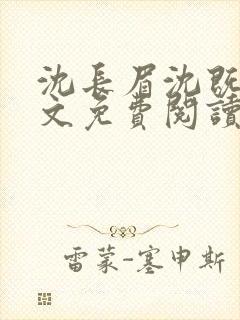 沈長眉沈既
文免費閱讀
雷蒙-塞申斯